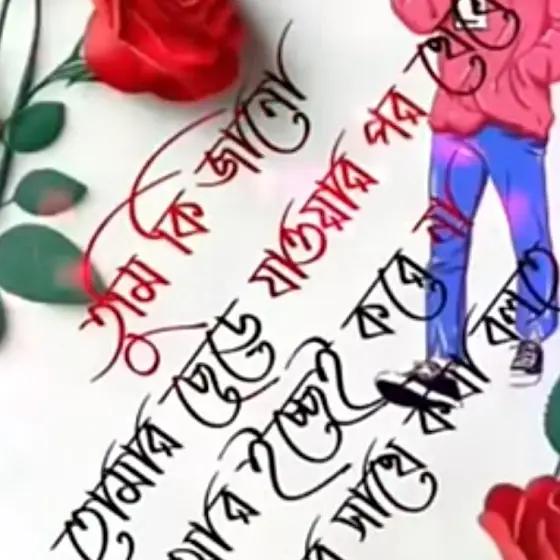 তুমি কি জানো
তোমার ছেড়ে যাওয়ার পর থেকে
আর ইচ্ছেই করে না
সাথে কথা বলতে